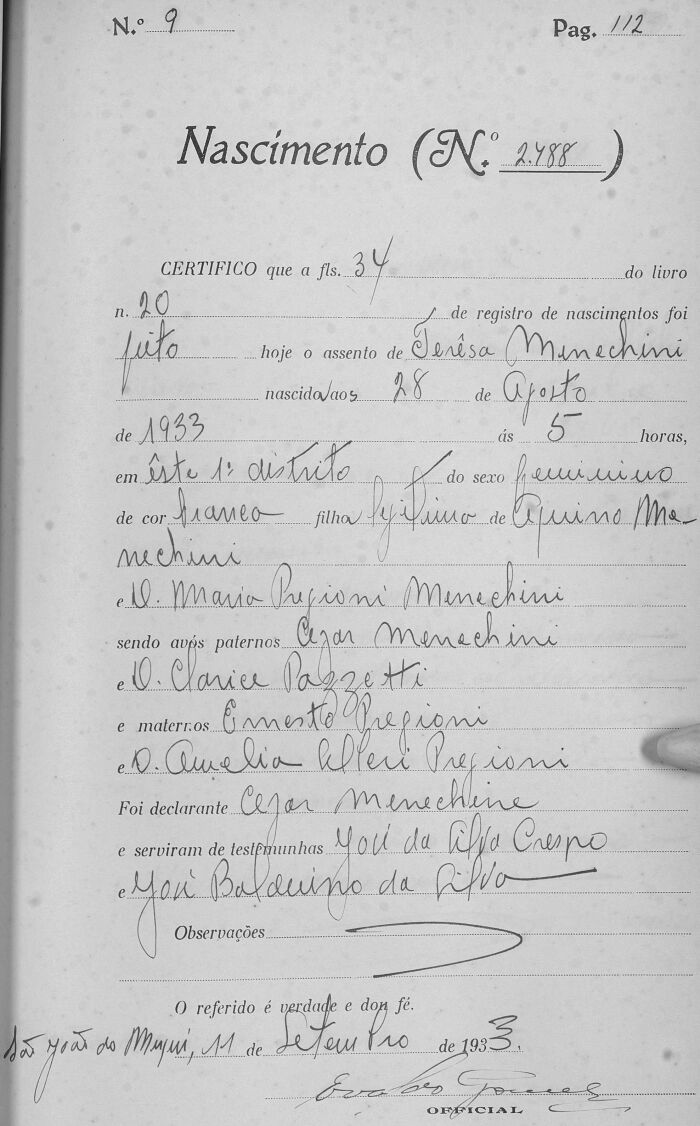 N.º 9 Pag. 112
Nascimento (N.º 2.488)
CERTIFICO que a fls. 34 do livro
n. 20 de registro de nascimentos foi
feito hoje o assento de Terêsa Menechini
nascida aos 28 de Agosto
de 1933 ás 5 horas,
em êste 1º distrito do sexo feminino
de cor branca filha legitima de Aquino Me-
nechini
e D. Maria Pregioni Menechini
sendo avós paternos Cezar Menechini
e D. Clarice Pazzetti
e maternos Ernesto Pregioni
e D. Amelia Alleri Pregioni
Foi declarante Cezar Menechine
e serviram de testemunhas José da Silva Crespo
e José Balduino da Silva
Observações
O referido é verdade e dou fé.
São João do Muqui, 11 de Setembro de 1933.
OFFICIAL